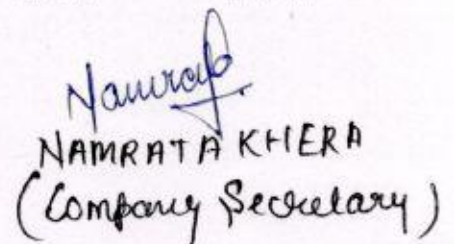 Namrata
NAMRATA KHERA
(Company Secretary)